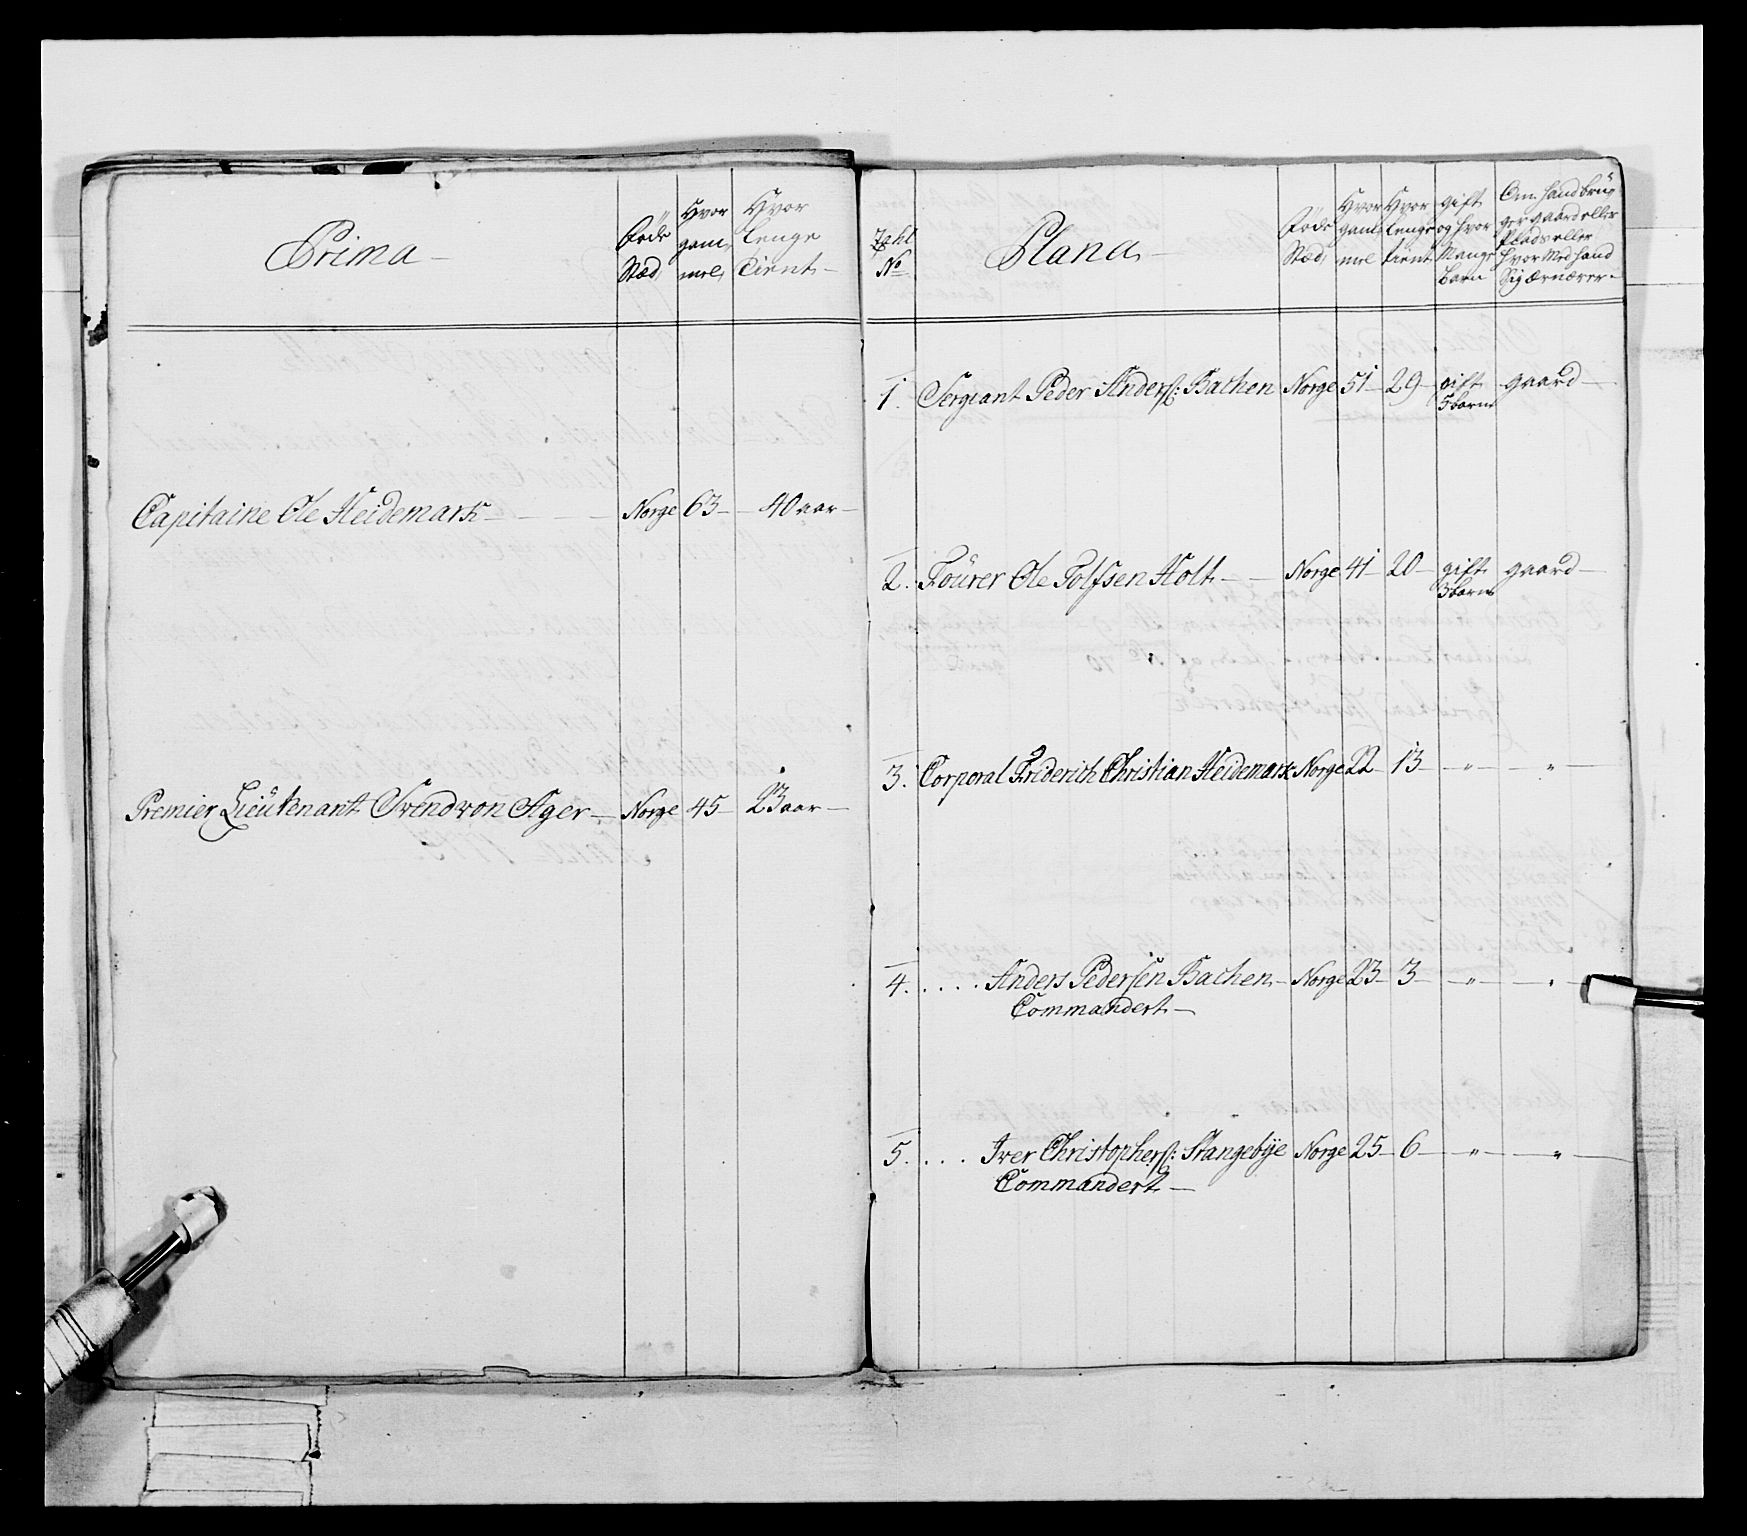 Prima
Føde Stæd
Hvor gam, mel,
Hvor lenge tient
Capitaine Ole Heidemark Norge 63 40 aar
Premier Lieütenant Svend von Ager Norge 45 23 aar
Tahl No
Plana
Føde Stæd,
Hvor gam, mel
Hvor lenge tient
gift og hvor Mange barn
Om hand brü, ger gaard eller Plads eller hvor med hand Sig ærnærer
1. Sergeant Peder Anders: Bachen Norge 51 29 gift 5 barn gaard
2. Foürer Ole Tolfsen Holt Norge 41 20 gift 3 barn gaard
3. Corporal Friderich Christian Heidemark Norge 22 13 " "
4. .... Anders Pedersen Bachen Norge 23 3 " "
Commandert
5. ... Iver Christophers: Stangebÿe Norge 25 6 " "
Commandert